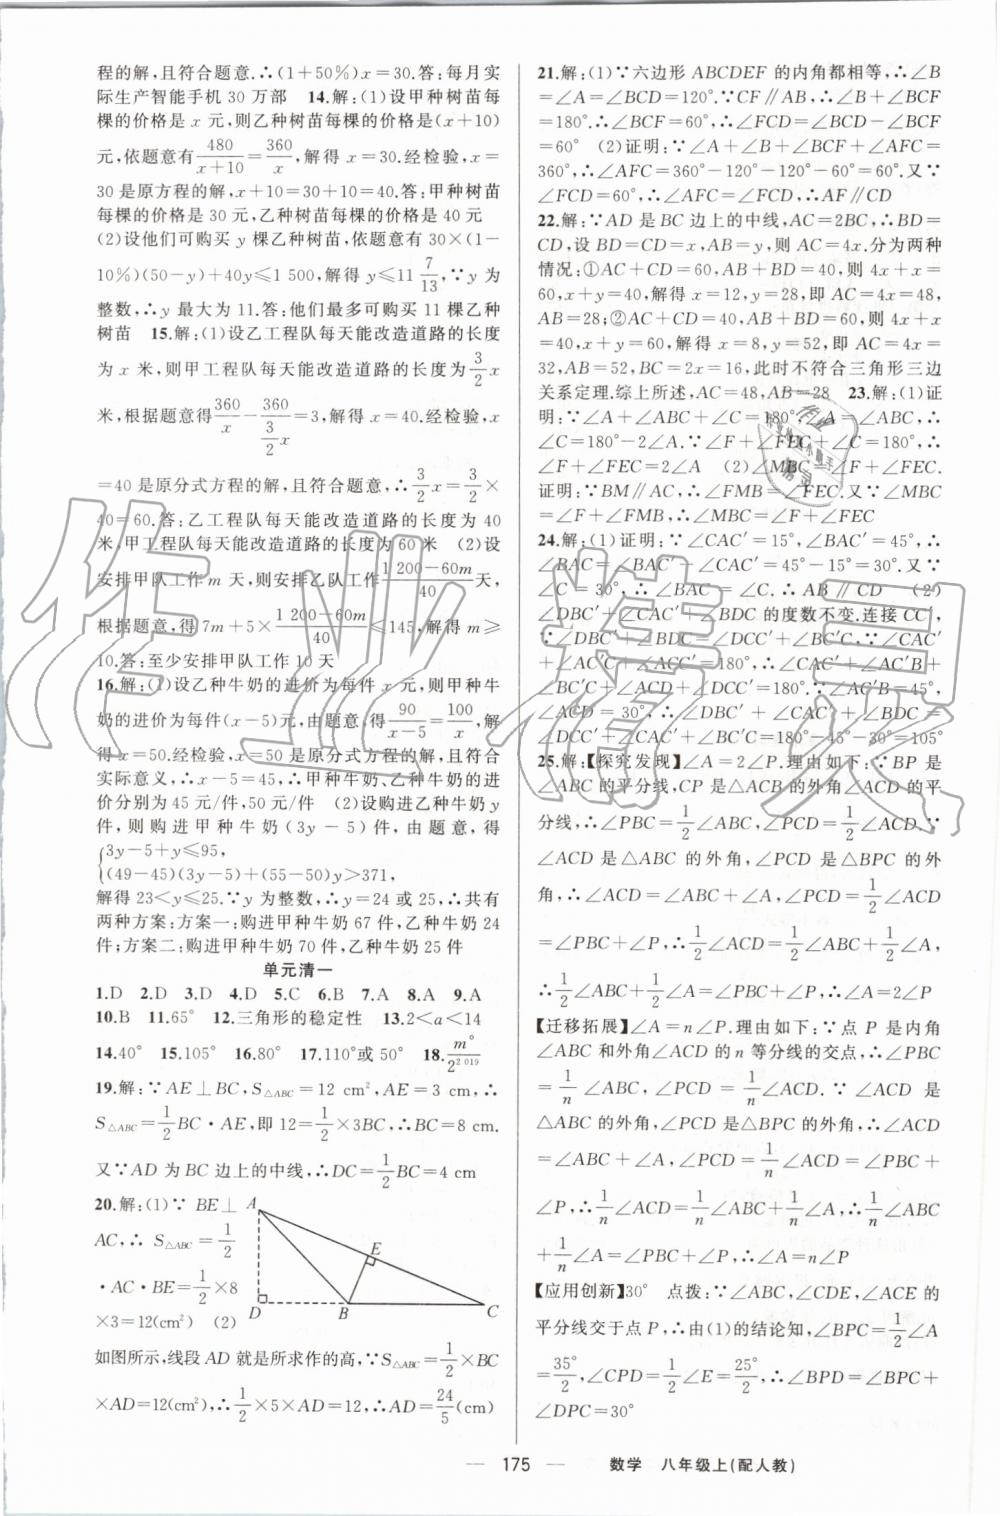 程的解,且符合题意.∴(1+50%)x=30.答:每月实
际生产智能手机 30 万部 14.解:(1)设甲种树苗每
棵的价格是 x 元,则乙种树苗每棵的价格是(x+10)
元,依题意有480/(x+10)=360/x,解得 x=30.经检验,x=
30 是原方程的解,x+10=30+10=40.答:甲种树苗
每棵的价格是 30 元,乙种树苗每棵的价格是 40 元
(2)设他们可购买 y 棵乙种树苗,依题意有 30×(1-
10%)(50-y)+40y≤1 500,解得 y≤11 7/13,∵y 为
整数,∴y 最大为 11.答:他们最多可购买 11 棵乙种
树苗 15.解:(1)设乙工程队每天能改造道路的长度
为 x 米,则甲工程队每天能改造道路的长度为 3/2 x
米,根据题意得360/x-360/(3/2 x)=3,解得 x=40.经检验,x
=40 是原分式方程的解,且符合题意,∴3/2 x=3/2×
40=60.答:乙工程队每天能改造道路的长度为 40
米,甲工程队每天能改造道路的长度为 60 米 (2)设
安排甲队工作 m 天,则安排乙队工作(1 200-60m)/40天,
根据题意,得 7m+5×(1 200-60m)/40≤145,解得 m≥
10.答:至少安排甲队工作 10 天
16.解:(1)设乙种牛奶的进价为每件 x 元,则甲种牛
奶的进价为每件(x-5)元,由题意,得90/(x-5)=100/x,解
得 x=50.经检验,x=50 是原分式方程的解,且符合
实际意义,∴x-5=45,∴甲种牛奶、乙种牛奶的进
价分别为 45 元/件,50 元/件 (2)设购进乙种牛奶 y
件,则购进甲种牛奶(3y-5)件,由题意,得
{3y-5+y≤95,
(49-45)(3y-5)+(55-50)y>371,
解得 23<y≤25.∵y 为整数,∴y=24 或 25,∴共有
两种方案:方案一:购进甲种牛奶 67 件,乙种牛奶 24
件;方案二:购进甲种牛奶 70 件,乙种牛奶 25 件
单元清一
1.D 2.D 3.D 4.D 5.C 6.B 7.A 8.A 9.A
10.B 11.65° 12.三角形的稳定性 13.2<a<14
14.40° 15.105° 16.80° 17.110°或 50° 18.m°/2^2 019
19.解:∵AE⊥BC,S△ABC=12 cm²,AE=3 cm,∴
S△ABC=1/2 BC·AE,即 12=1/2×3BC,∴BC=8 cm.
又∵AD 为 BC 边上的中线,∴DC=1/2 BC=4 cm
20.解:(1)∵ BE⊥
AC,∴ S△ABC=1/2
·AC·BE=1/2×8
×3=12(cm²) (2)
A
E
D
B
C
如图所示,线段 AD 就是所求作的高,∵S△ABC=1/2×BC
×AD=12(cm²),∴1/2×5×AD=12,∴AD=24/5(cm)
21.解:(1)∵六边形 ABCDEF 的内角都相等,∴∠B
=∠A=∠BCD=120°.∵CF∥AB,∴∠B+∠BCF
=180°.∴∠BCF=60°,∴∠FCD=∠BCD-∠BCF
=60° (2)证明:∵∠A+∠B+∠BCF+∠AFC=
360°,∴∠AFC=360°-120°-120°-60°=60°.又∵
∠FCD=60°,∴∠AFC=∠FCD,∴AF∥CD
22.解:∵AD 是 BC 边上的中线,AC=2BC,∴BD=
CD,设 BD=CD=x,AB=y,则 AC=4x.分为两种
情况:①AC+CD=60,AB+BD=40,则 4x+x=
60,x+y=40,解得 x=12,y=28,即 AC=4x=48,
AB=28;②AC+CD=40,AB+BD=60,则 4x+x
=40,x+y=60,解得 x=8,y=52,即 AC=4x=
32,AB=52,BC=2x=16,此时不符合三角形三边
关系定理.综上所述,AC=48,AB=28 23.解:(1)证
明:∵∠A+∠ABC+∠C=180°,∠A=∠ABC,∴
∠C=180°-2∠A.∵∠F+∠FEC+∠C=180°,∴
∠F+∠FEC=2∠A (2)∠MBC=∠F+∠FEC.
证明:∵BM∥AC,∴∠FMB=∠FEC.又∵∠MBC
=∠F+∠FMB,∴∠MBC=∠F+∠FEC
24.解:(1)证明:∵∠CAC′=15°,∠BAC′=45°,∴
∠BAC=∠BAC′-∠CAC′=45°-15°=30°.又∵
∠C=30°,∴∠BAC=∠C,∴AB∥CD (2)
∠DBC′+∠CAC′+∠BDC 的度数不变.连接 CC′,
∵∠DBC′+∠BDC=∠DCC′+∠BC′C,又∵∠CAC′
+∠AC′C+∠ACC′=180°,∴∠CAC′+∠AC′B
+∠BC′C+∠ACD+∠DCC′=180°.∵∠AC′B=45°,
∠ACD=30°,∴∠DBC′+∠CAC′+∠BDC=
∠DCC′+∠BC′C+∠CAC′=180°-45°-30°=105°
25.解:【探究发现】∠A=2∠P.理由如下:∵BP 是
∠ABC 的平分线,CP 是∠ACB 的外角∠ACD 的平
分线,∴∠PBC=1/2∠ABC,∠PCD=1/2∠ACD.∵
∠ACD 是△ABC 的外角,∠PCD 是△BPC 的外
角,∴∠ACD=∠ABC+∠A,∠PCD=1/2∠ACD
=∠PBC+∠P,∴1/2∠ACD=1/2∠ABC+1/2∠A,
∴1/2∠ABC+1/2∠A=∠PBC+∠P,∴∠A=2∠P
【迁移拓展】∠A=n∠P.理由如下:∵点 P 是内角
∠ABC 和外角∠ACD 的 n 等分线的交点,∴∠PBC
=1/n∠ABC,∠PCD=1/n∠ACD.∵∠ACD 是
△ABC 的外角,∠PCD 是△BPC 的外角,∴∠ACD
=∠ABC+∠A,∠PCD=1/n∠ACD=∠PBC+
∠P,∴1/n∠ACD=1/n∠ABC+1/n∠A,∴1/n∠ABC
+1/n∠A=∠PBC+∠P,∴∠A=n∠P
【应用创新】30° 点拨:∵∠ABC,∠CDE,∠ACE 的
平分线交于点 P,∴由(1)的结论知,∠BPC=1/2∠A
=35°/2,∠CPD=1/2∠E=25°/2,∴∠BPD=∠BPC+
∠DPC=30°
— 175 — 数学 八年级上(配人教)
作业精灵